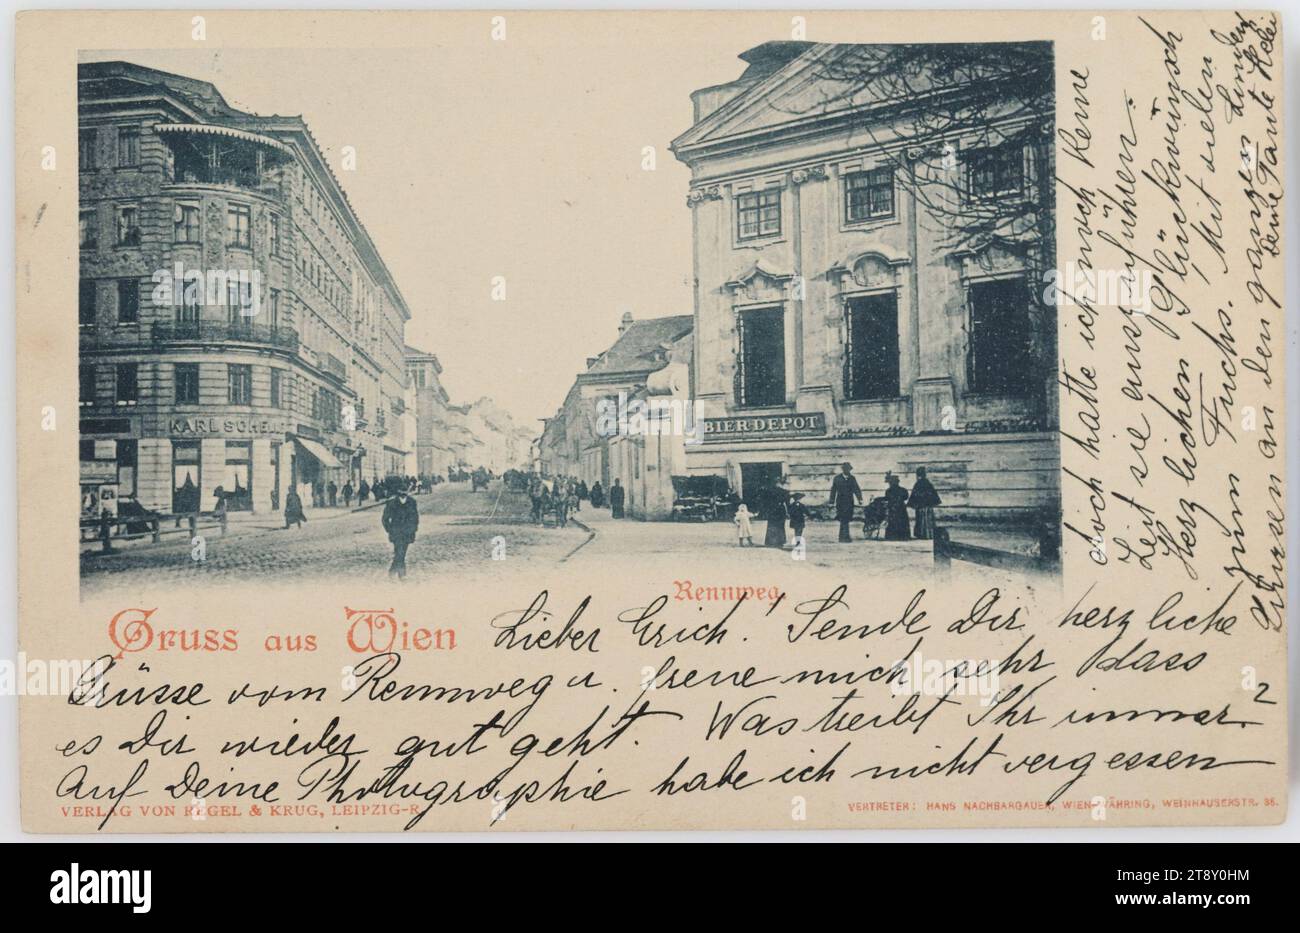 KARL SCHE
BIERDEPOT
Rennweg.
Gruss aus Wien
Lieber Erich! Sende Dir herzliche
Grüsse vom Rennweg u. freue mich sehr dass
es Dir wieder gut geht. Was treibt Ihr immer?
Auf Deine Photographie habe ich nicht vergessen
doch hatte ich noch keine
Zeit sie auszuführen.
Herzlichen Glückwunsch
zum Fuchs. Mit vielen
Grüssen an den ganzen Linden
Deine Tante
VERLAG VON REGEL & KRUG, LEIPZIG-R.
VERTRETER: HANS NACHBARGAUER, WIEN-WÄHRING, WEINHAUSERSTR. 36.
alamy
Image ID: 2T8Y0HM
www.alamy.com